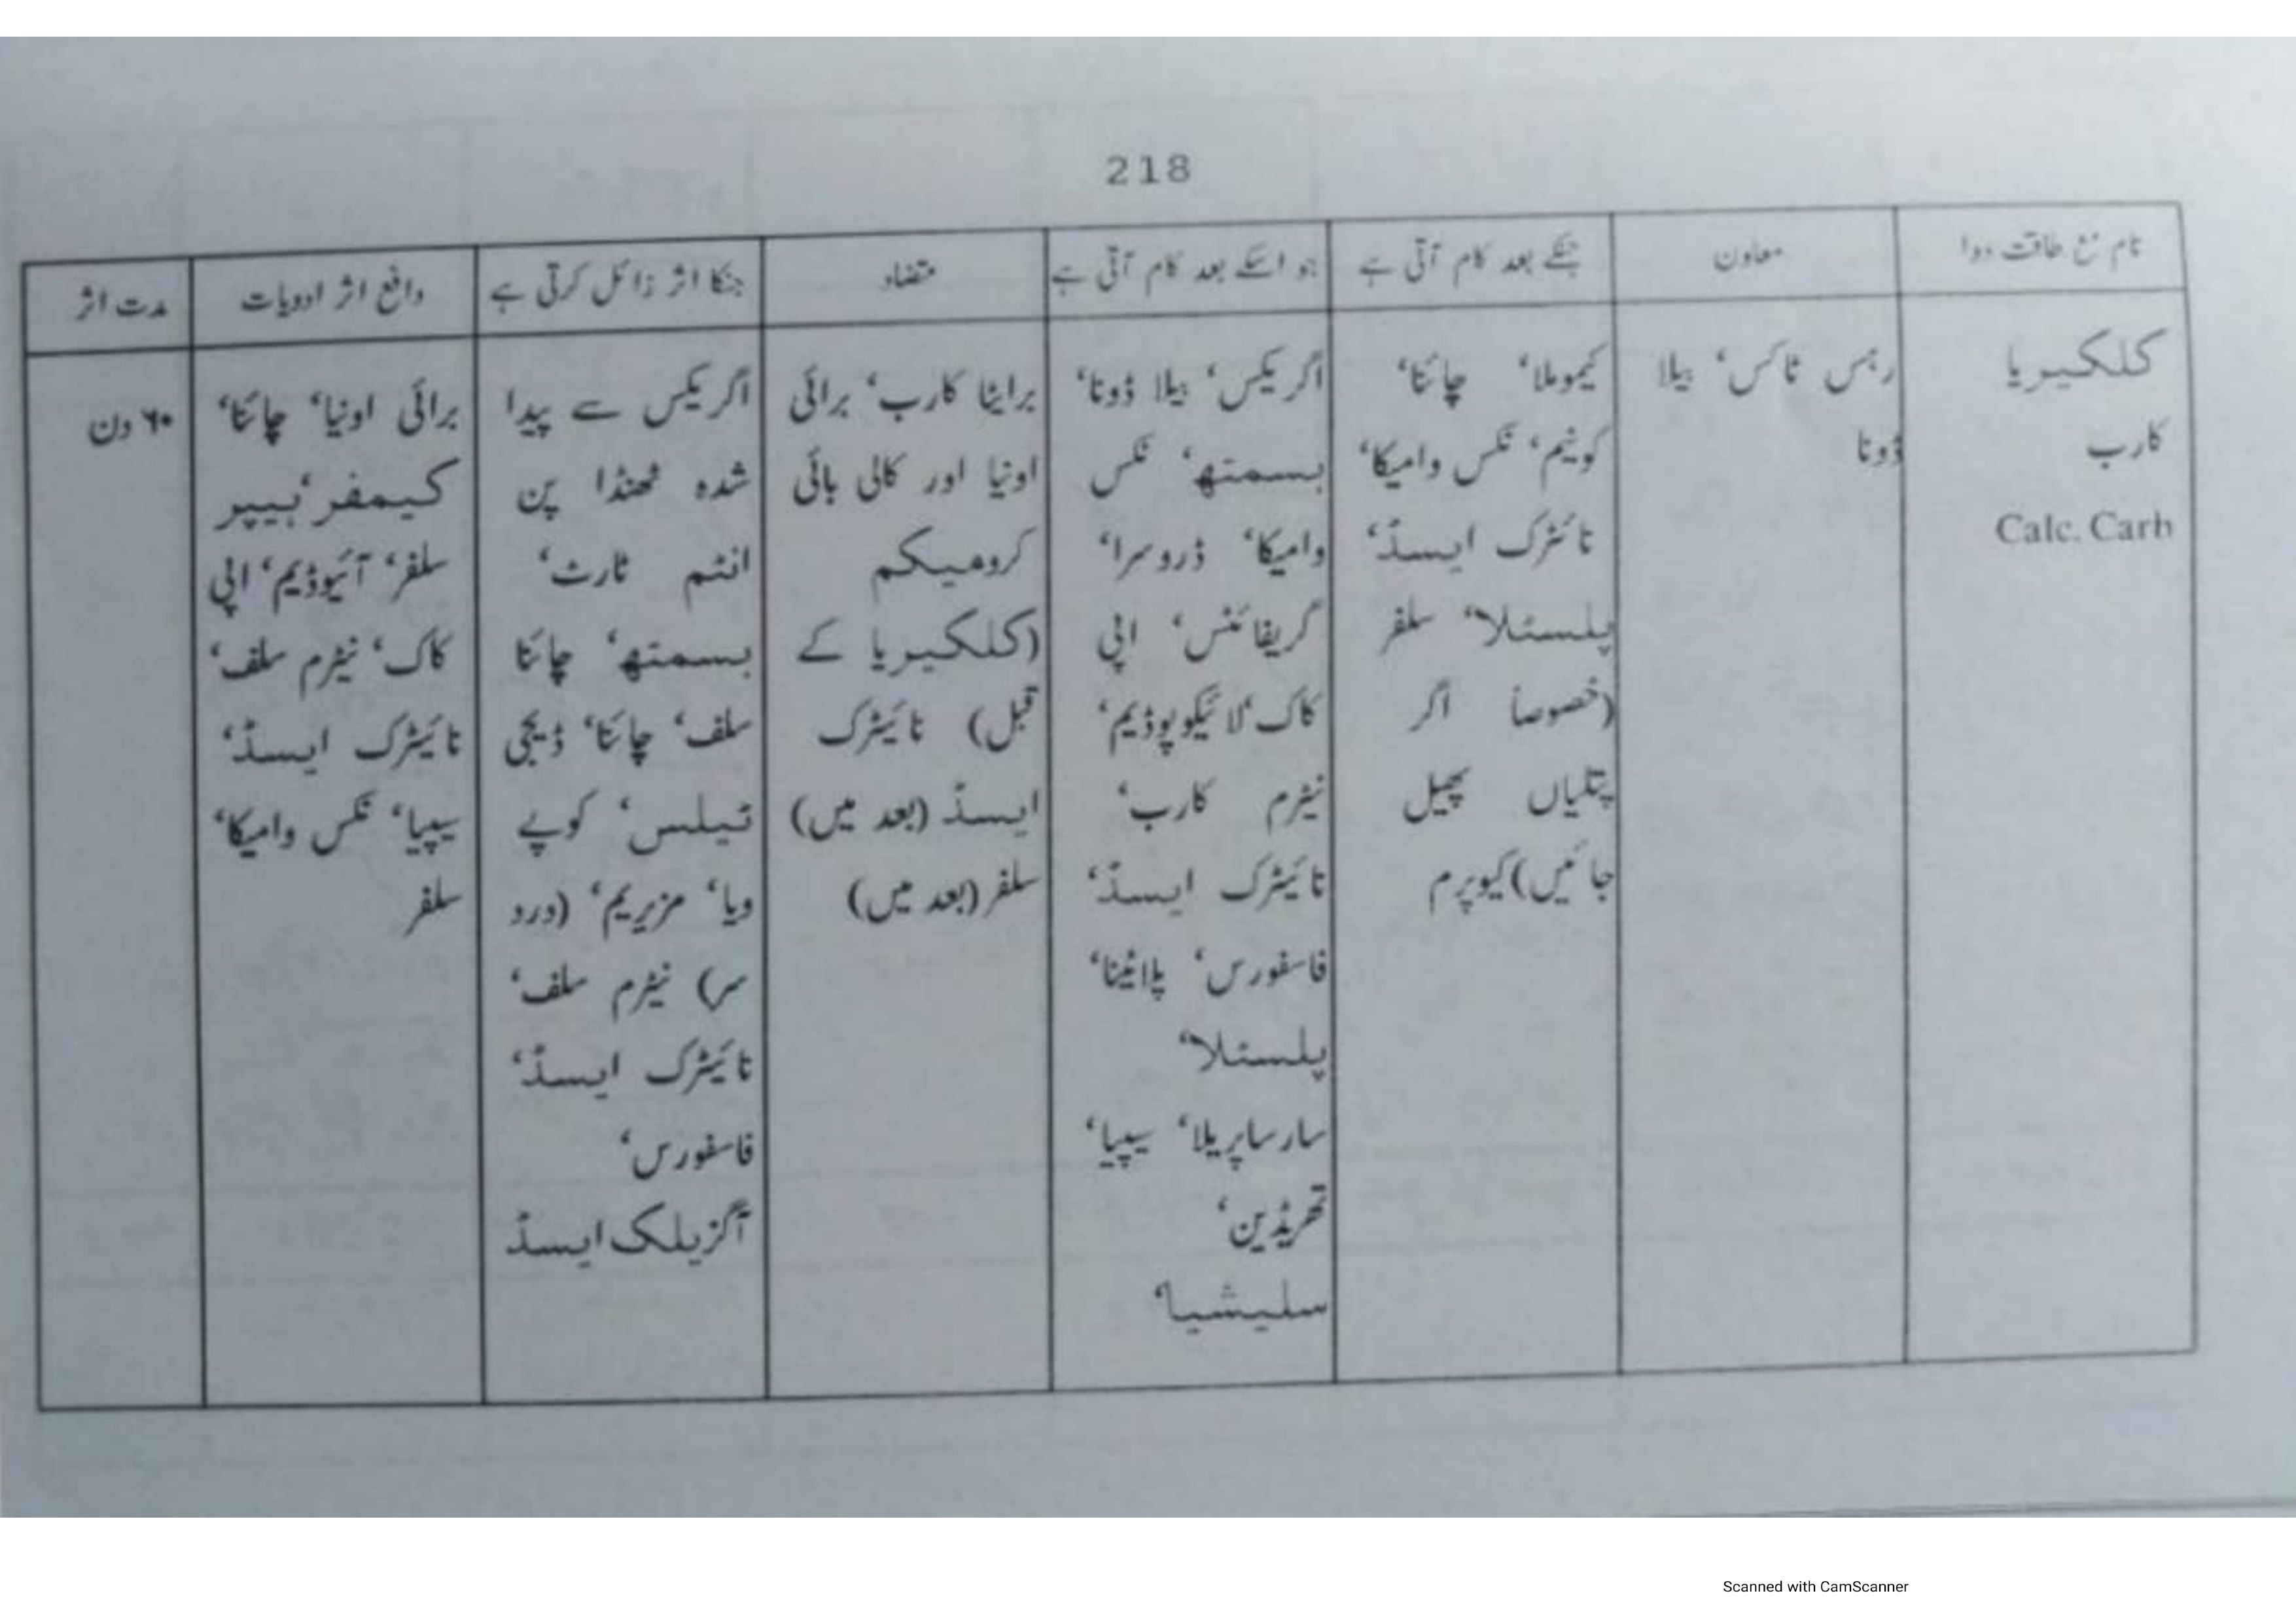 218
نام مع طاقت دوا
معاون
جنکے بعد کام آتی ہے
جو اسکے بعد کام آتی ہے
متضاد
جنکا اثر زائل کرتی ہے
دافع اثر ادویات
مدت اثر
کلکیریا
کارب
Calc. Carb
رہس ٹاکس، بیلا
ڈونا
کیموملا، چائنا،
کونیم، نکس وامیکا،
نائٹرک ایسڈ،
پلسٹلا، سلفر
(خصوصاً اگر
پتلیاں پھیل
جائیں) کیوپرم
اگریکس، بیلا ڈونا،
بسمتھ، نکس
وامیکا، ڈروسرا،
گریفائٹس، اپی
کاک، لائیکوپوڈیم،
نیٹرم کارب،
نائیٹرک ایسڈ،
فاسفورس، پلاٹینا،
پلسٹلا،
سارساپریلا، سیپیا،
تھریڈین،
سلیشیا،
برایٹا کارب، برائی
اونیا اور کالی بائی
کرومیکم
(کلکیریا کے
قبل) نائیٹرک
ایسڈ (بعد میں)
سلفر (بعد میں)
اگریکس سے پیدا
شدہ ٹھنڈا پن
انٹم ٹارٹ،
بسمتھ، چائنا
سلف، چائنا، ڈیجی
ٹیلس، کوپے
ویا، مزیریم، (درد
سر) نیٹرم سلف،
نائیٹرک ایسڈ،
فاسفورس،
آگزیلک ایسڈ
برائی اونیا، چائنا،
کیمفر، ہیپر
سلفر، آئیوڈیم، اپی
کاک، نیٹرم سلف،
نائیٹرک ایسڈ،
سیپیا، نکس وامیکا،
سلفر
۶۰ دن
Scanned with CamScanner